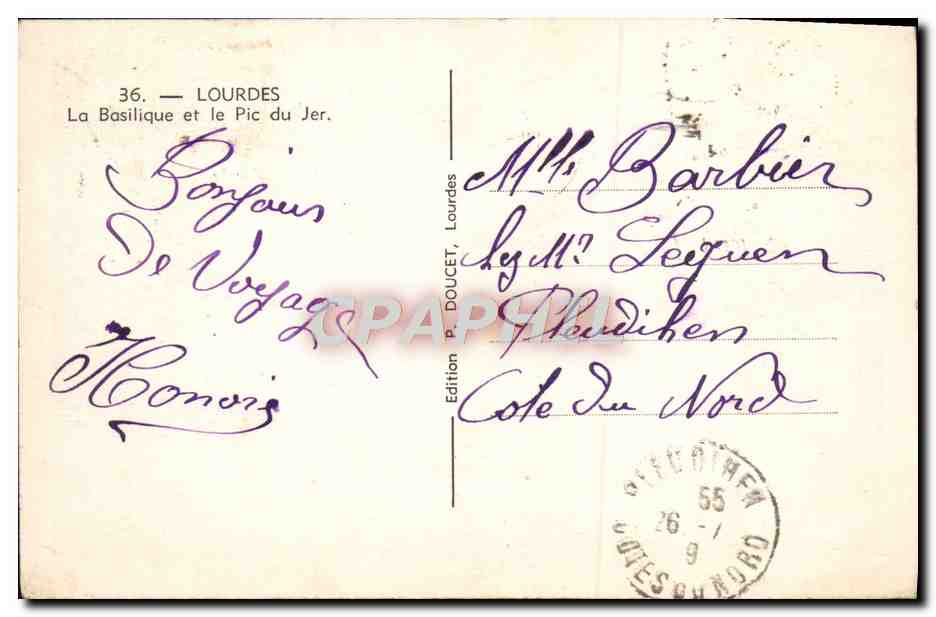 36. — LOURDES
La Basilique et le Pic du Jer.
Bonjour
De Voyage
Honoré
Edition P. DOUCET, Lourdes
Mlle Barbier
hez Mr Lequen
Pleudihen
Cote du Nord
CPAPHIL
PLEUDIHEN
55
26 -
9
COTES DU NORD